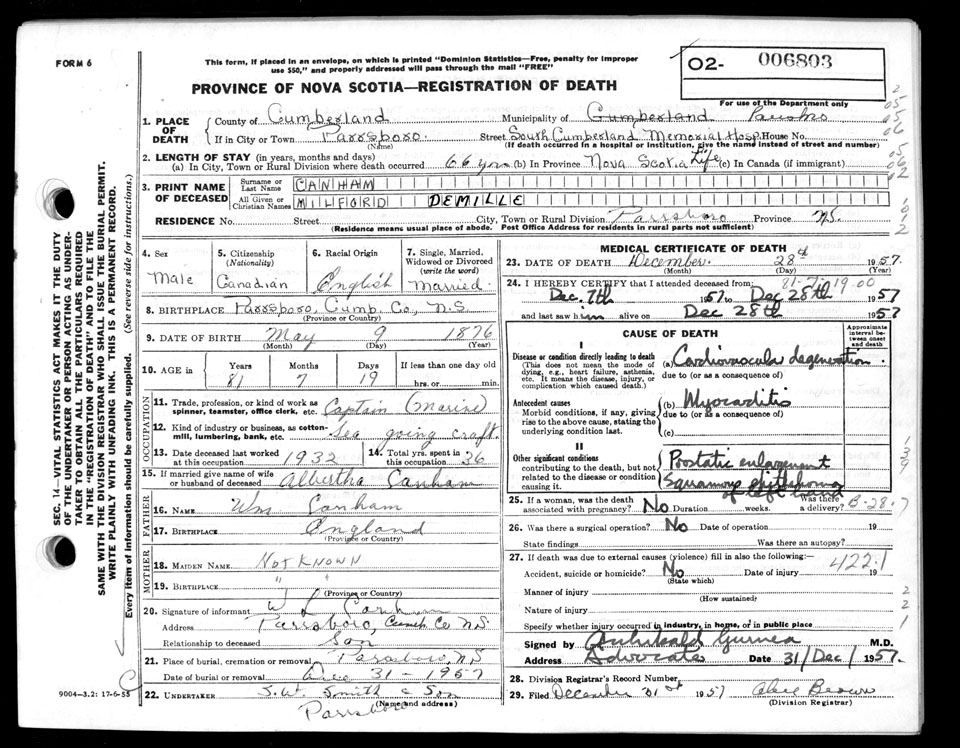 FORM 6
This form, if placed in an envelope, on which is printed "Dominion Statistics—Free, penalty for improper
use $50," and properly addressed will pass through the mail "FREE"
O2- 006803
PROVINCE OF NOVA SCOTIA—REGISTRATION OF DEATH
For use of the Department only
1. PLACE OF DEATH
County of Cumberland Municipality of Cumberland Parrsboro
If in City or Town Parrsboro. Street South Cumberland Memorial Hosp. House No.
(Name) (If death occurred in a hospital or institution, give the name instead of street and number)
2. LENGTH OF STAY (in years, months and days)
(a) In City, Town or Rural Division where death occurred 66 yrs (b) In Province Nova Scotia Life (c) In Canada (if immigrant)
3. PRINT NAME OF DECEASED
Surname or Last Name CANHAM
All Given or Christian Names MILFORD DEMILLE
RESIDENCE No. Street City, Town or Rural Division Parrsboro Province N.S.
(Residence means usual place of abode. Post Office Address for residents in rural parts not sufficient)
4. Sex 5. Citizenship (Nationality) 6. Racial Origin 7. Single, Married, Widowed or Divorced (write the word)
Male Canadian English Married.
8. BIRTHPLACE Parrsboro, Cumb. Co., N.S
(Province or Country)
9. DATE OF BIRTH May 9 1876
(Month) (Day) (Year)
10. AGE in Years Months Days If less than one day old
81 7 19 hrs. or min.
OCCUPATION
11. Trade, profession, or kind of work as spinner, teamster, office clerk, etc. Captain (Marine)
12. Kind of industry or business, as cotton-mill, lumbering, bank, etc. Sea going craft.
13. Date deceased last worked at this occupation 1932 14. Total yrs. spent in this occupation 36
15. If married give name of wife or husband of deceased Albertha Canham
FATHER
16. NAME Wm Canham
17. BIRTHPLACE England
(Province or Country)
MOTHER
18. MAIDEN NAME Not Known
19. BIRTHPLACE " "
(Province or Country)
20. Signature of informant W L Canham
Address Parrsboro, Cumb. Co N.S.
Relationship to deceased Son
21. Place of burial, cremation or removal Parrsboro, N.S
Date of burial or removal Dec 31 - 1957
22. UNDERTAKER S.W. Smith & Son
(Name and address)
Parrsboro
9004-3.2: 17-6-55
MEDICAL CERTIFICATE OF DEATH
23. DATE OF DEATH December. 28th 1957.
(Month) (Day) (Year)
81-7-19 00
24. I HEREBY CERTIFY that I attended deceased from:
Dec. 7th 1957 to Dec 28th 1957
and last saw him alive on Dec 28th 1957
CAUSE OF DEATH
Approximate interval between onset and death
I
Disease or condition directly leading to death (a) Cardiovascular degeneration.
(This does not mean the mode of dying, e.g., heart failure, asthenia, etc. It means the disease, injury, or complication which caused death.
due to (or as a consequence of)
Antecedent causes (b) Myocarditis
Morbid conditions, if any, giving rise to the above cause, stating the underlying condition last.
due to (or as a consequence of)
(c)
II
Other significant conditions Prostatic enlargement
contributing to the death, but not related to the disease or condition causing it.
Squamous epithelioma
of left hand
25. If a woman, was the death associated with pregnancy? No Duration weeks. Was there a delivery? B-28-7
26. Was there a surgical operation? No Date of operation 19
State findings Was there an autopsy?
27. If death was due to external causes (violence) fill in also the following: 422.1
Accident, suicide or homicide? No Date of injury 19
(State which)
Manner of injury
(How sustained)
Nature of injury
Specify whether injury occurred in industry, in home, or in public place
Signed by Archibald Gurnea M.D.
Address Advocate Date 31/Dec/1957.
28. Division Registrar's Record Number
29. Filed December 31st 1957 Brown
(Division Registrar)
SEC. 14—VITAL STATISTICS ACT MAKES IT THE DUTY
OF THE UNDERTAKER OR PERSON ACTING AS UNDER-
TAKER TO OBTAIN ALL THE PARTICULARS REQUIRED
IN THE "REGISTRATION OF DEATH" AND TO FILE THE
SAME WITH THE DIVISION REGISTRAR WHO SHALL ISSUE THE BURIAL PERMIT.
WRITE PLAINLY WITH UNFADING INK. THIS IS A PERMANENT RECORD.
Every item of information should be carefully supplied. (See reverse side for instructions.)